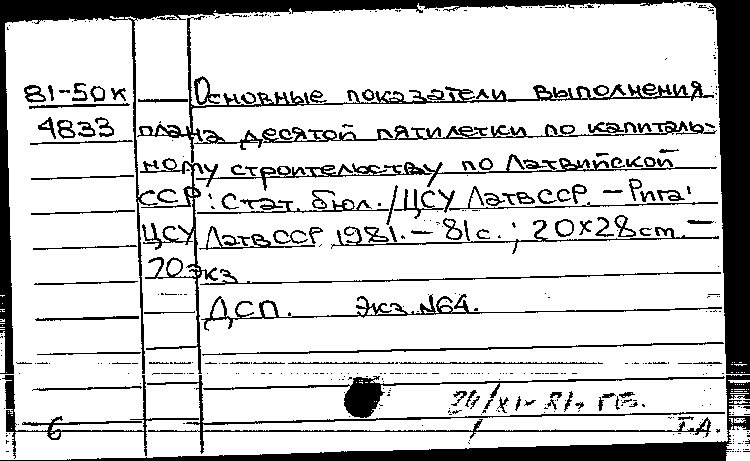 81-50к Основные показатели выполнения
4833 плана десятой пятилетки по капиталь-
ному строительству по Латвийской
ССР: Стат. бюл. / ЦСУ ЛатвССР. - Рига:
ЦСУ ЛатвССР, 1981. - 81с.; 20х28cm. -
70экз.
ДСП. Экз. №64.
24/XI-81г. ГБ.
6 Т.А.